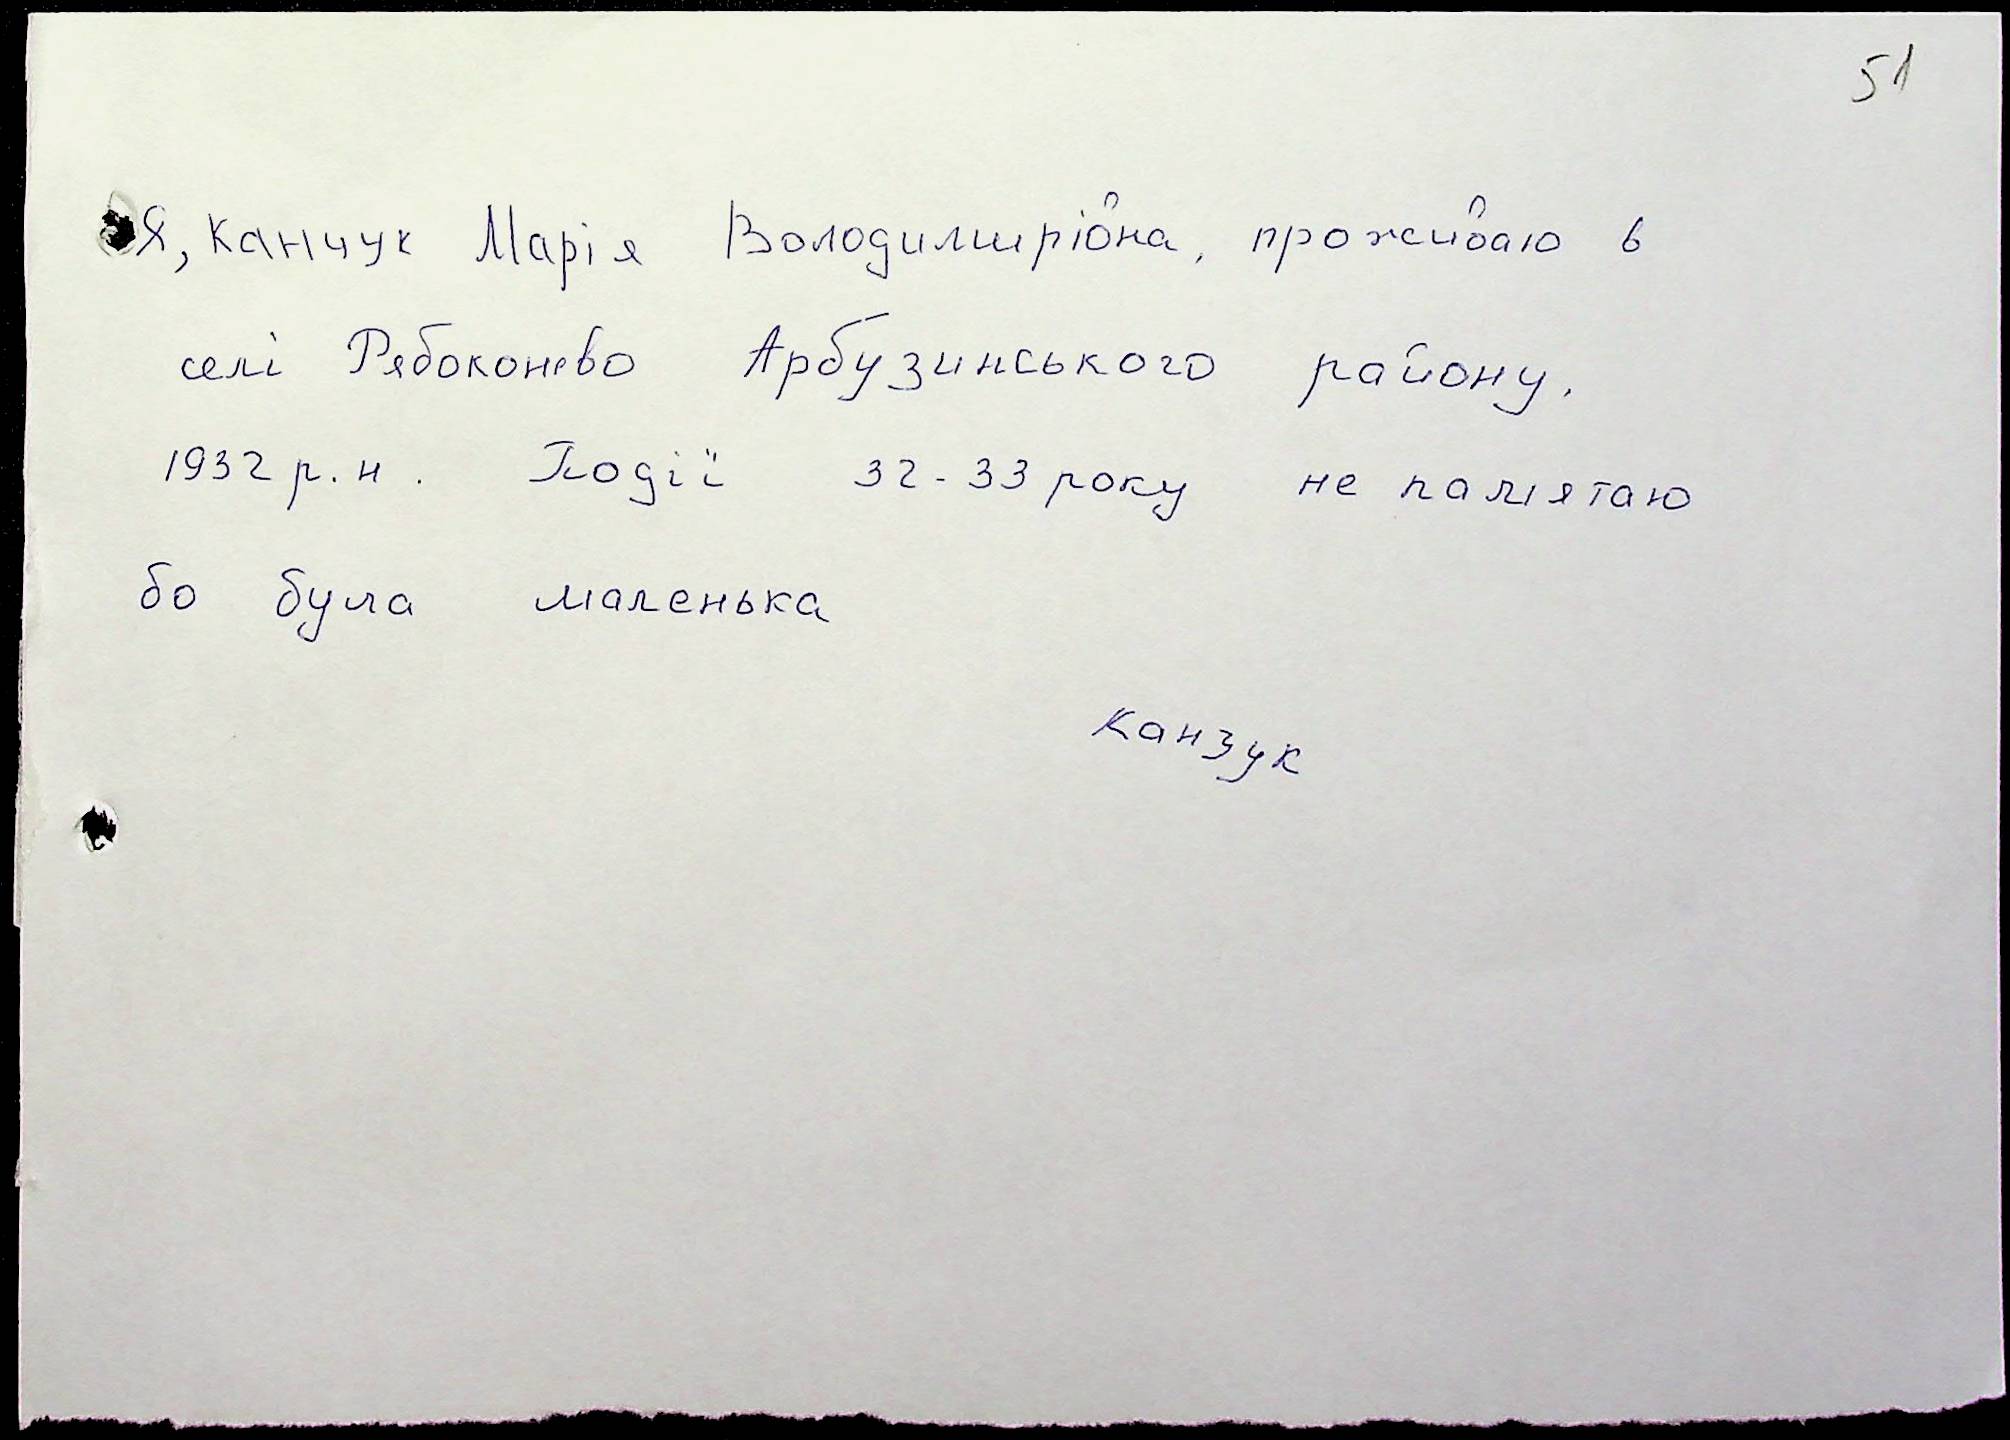 51
Я, Канчук Марія Володимирівна, проживаю в
селі Рябоконево Арбузинського району,
1932 р.н. Події 32-33 року не памятаю
бо була маленька
Канзук